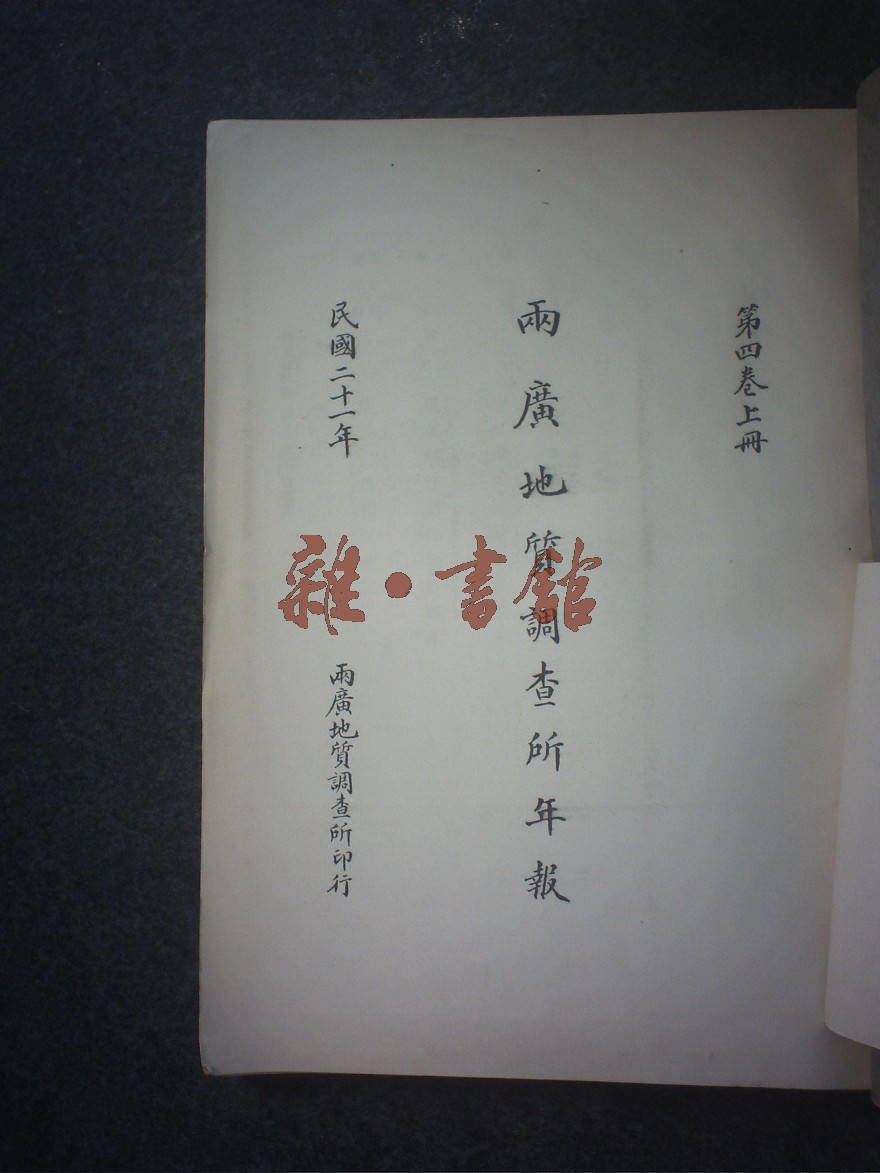 第四卷上冊
兩廣地質調查所年報
民國二十一年
兩廣地質調查所印行
雜·書館